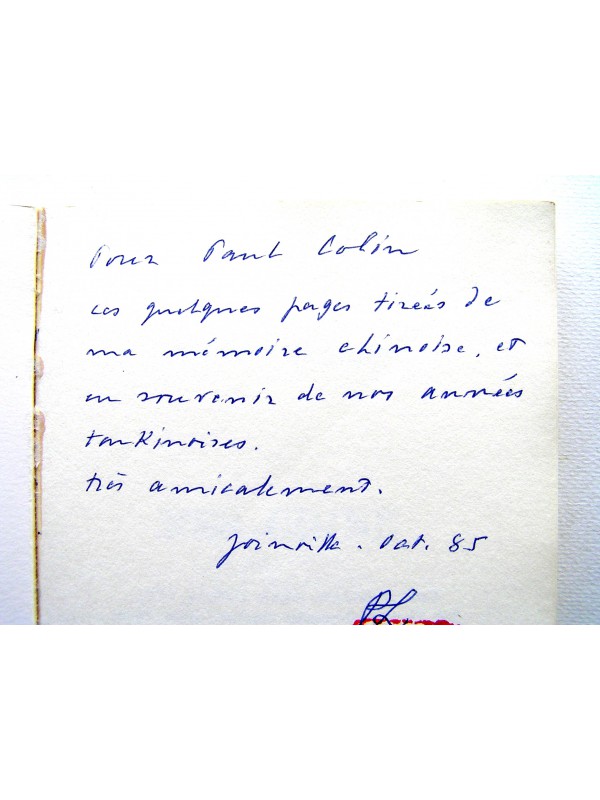 Pour Paul Colin
ces quelques pages tirées de
ma mémoire chinoise, et
en souvenir de nos années
tonkinoises.
très amicalement.
Joinville. Oct. 85
PL